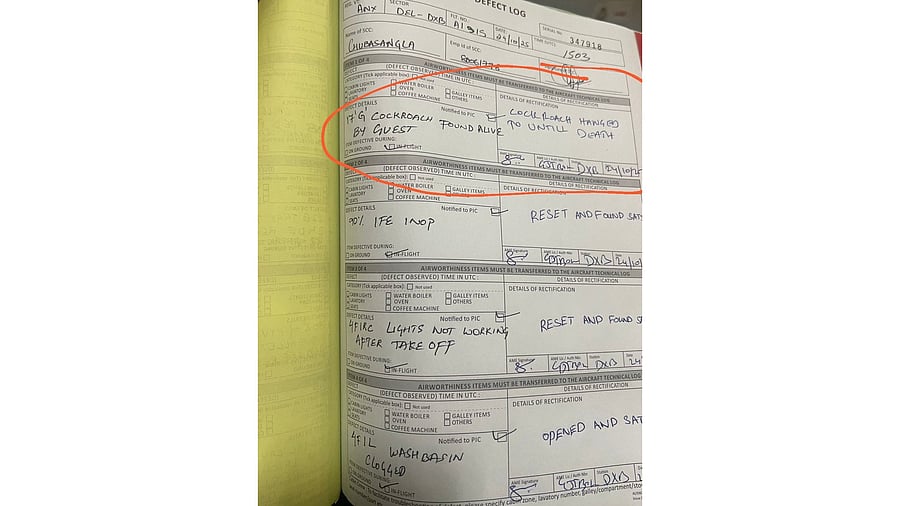 DEFECT LOG
ANX
SECTOR
DEL-DXB
FLT. NO.
AI 915
DATE
24/10/25
SERIAL NO:
347918
TIME (UTC)
1503
Name of SCC:
CHUBASANGLA
Emp id of SCC:
ITEM 1 OF 4
AIRWORTHINESS ITEMS MUST BE TRANSFERRED TO THE AIRCRAFT TECHNICAL LOG
DEFECT
(DEFECT OBSERVED) TIME IN UTC :
DETAILS OF RECTIFICATION
CATEGORY (Tick applicable box) Not used
CABIN LIGHTS WATER BOILER GALLEY ITEMS
LAVATORY OVEN OTHERS
SEATS COFFEE MACHINE
DETAILS OF RECTIFICATION
DEFECT DETAILS
Notified to PIC
17'G' COCKROACH FOUND ALIVE
BY GUEST
COCKROACH HANGED
TO UNTILL DEATH
ITEM DEFECTIVE DURING:
ON GROUND IN-FLIGHT
AME Signature
DXB
ITEM 2 OF 4
AIRWORTHINESS ITEMS MUST BE TRANSFERRED TO THE AIRCRAFT TECHNICAL LOG
DEFECT
(DEFECT OBSERVED) TIME IN UTC :
DETAILS OF RECTIFICATION
CATEGORY (Tick applicable box) Not used
CABIN LIGHTS WATER BOILER GALLEY ITEMS
LAVATORY OVEN OTHERS
SEATS COFFEE MACHINE
DEFECT DETAILS
Notified to PIC
IFE INOP
RESET AND FOUND
ITEM DEFECTIVE DURING:
ON GROUND IN-FLIGHT
AME Signature AME Lic / Auth No: Station Date
DXB
ITEM 3 OF 4
AIRWORTHINESS ITEMS MUST BE TRANSFERRED TO THE AIRCRAFT TECHNICAL LOG
DEFECT
(DEFECT OBSERVED) TIME IN UTC :
DETAILS OF RECTIFICATION
CATEGORY (Tick applicable box) Not used
CABIN LIGHTS WATER BOILER GALLEY ITEMS
LAVATORY OVEN OTHERS
SEATS COFFEE MACHINE
DEFECT DETAILS
Notified to PIC
LIGHTS NOT WORKING
AFTER TAKE OFF
RESET AND FOUND
ITEM DEFECTIVE DURING:
ON GROUND IN-FLIGHT
AME Signature AME Lic / Auth No: Station Date
DXB
ITEM 4 OF 4
AIRWORTHINESS ITEMS MUST BE TRANSFERRED TO THE AIRCRAFT TECHNICAL LOG
DEFECT
(DEFECT OBSERVED) TIME IN UTC :
DETAILS OF RECTIFICATION
CATEGORY (Tick applicable box) Not used
CABIN LIGHTS WATER BOILER GALLEY ITEMS
LAVATORY OVEN OTHERS
SEATS COFFEE MACHINE
DEFECT DETAILS
Notified to PIC
WASHBASIN
CLOGGED
OPENED AND
ITEM DEFECTIVE DURING:
ON GROUND IN-FLIGHT
AME Signature AME Lic / Auth No: Station
DXB
please specify cabin zone, lavatory number, galley/compartment